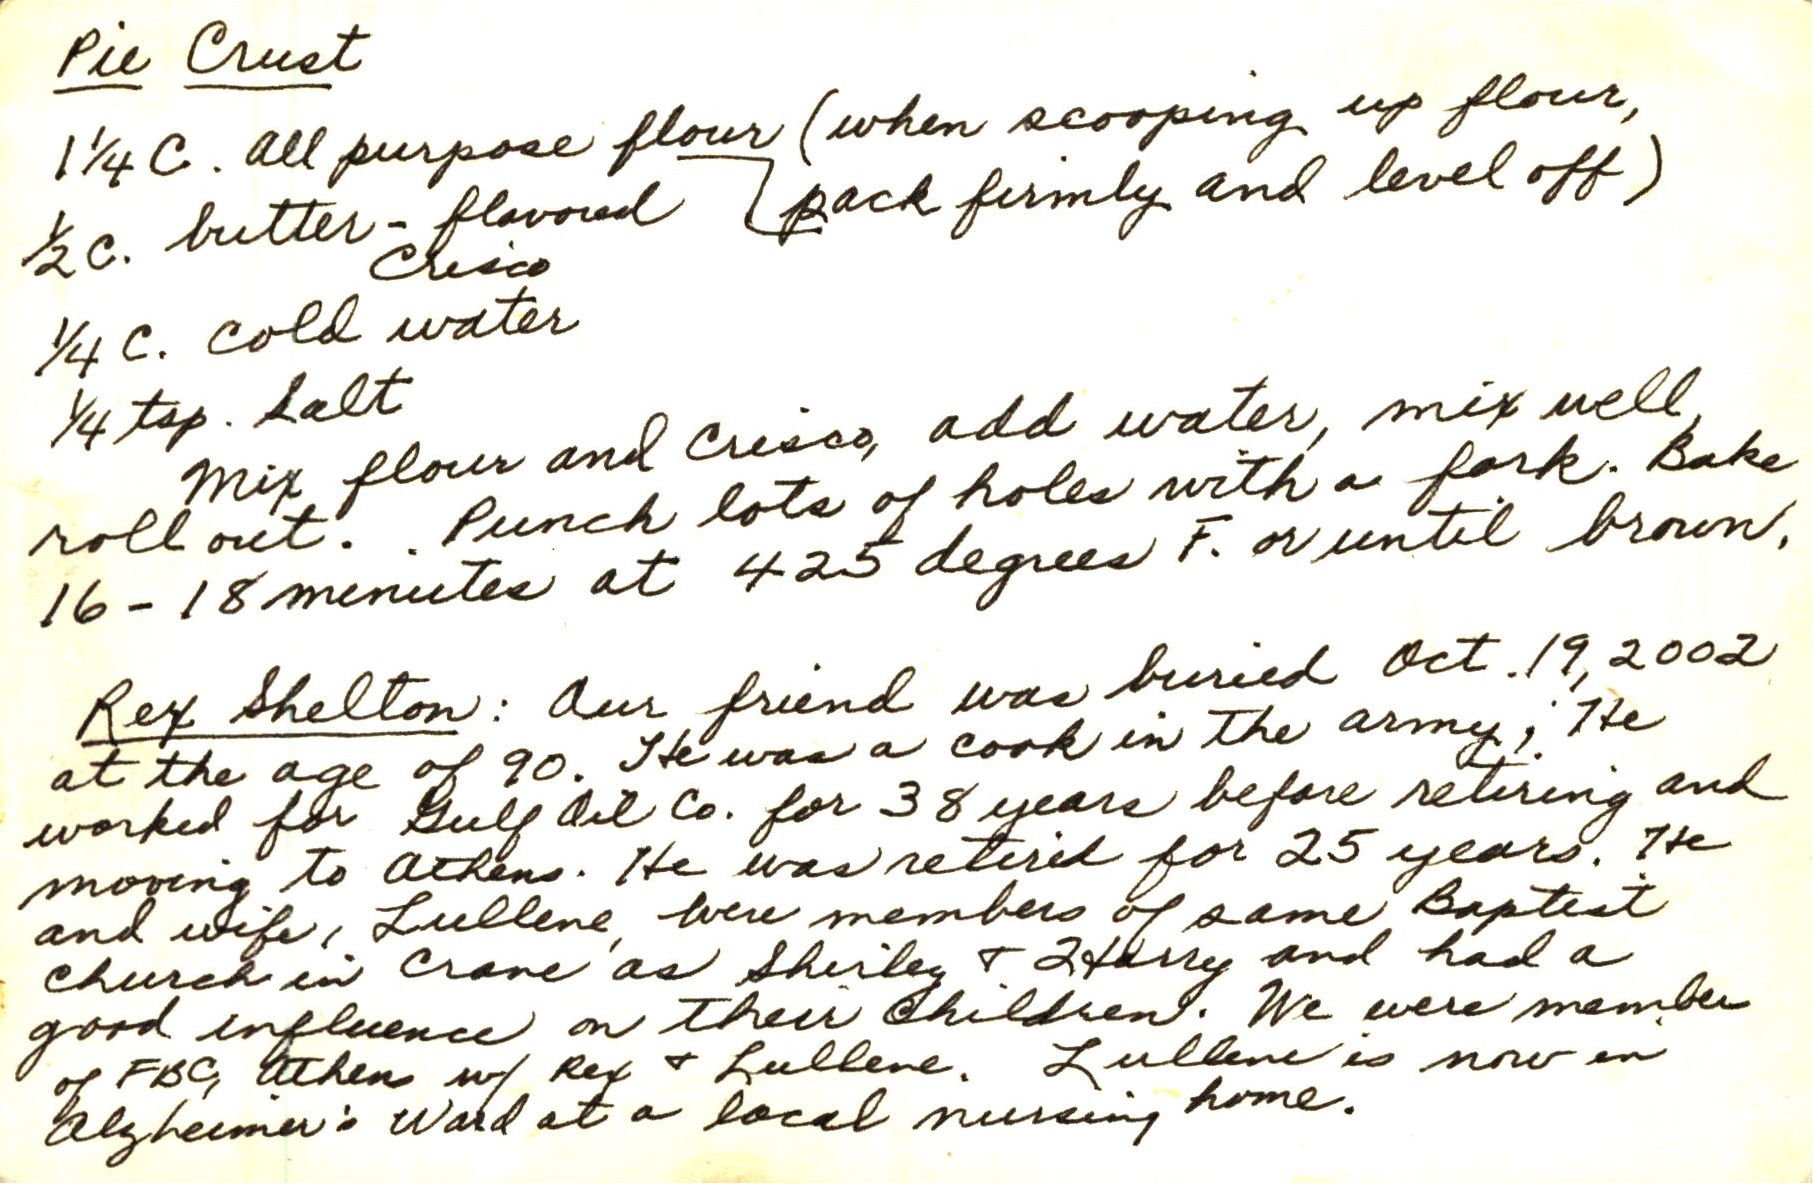 Pie Crust
1 1/4 C. All purpose flour (when scooping up flour,
pack firmly and level off)
1/2 C. butter-flavored
Crisco
1/4 C. cold water
1/4 tsp. Salt
Mix flour and Crisco, add water, mix well,
roll out. Punch lots of holes with a fork. Bake
16-18 minutes at 425 degrees F. or until brown.
Rex Shelton: Our friend was buried Oct. 19, 2002
at the age of 90. He was a cook in the army; He
worked for Gulf Oil Co. for 38 years before retiring and
moving to Athens. He was retired for 25 years. He
and wife, Lullene, were members of same Baptist
church in Crane as Shirley & Harry and had a
good influence on their children. We were member
of FBC, Athens w/ Rex & Lullene. Lullene is now in
Alzheimer's Ward at a local nursing home.